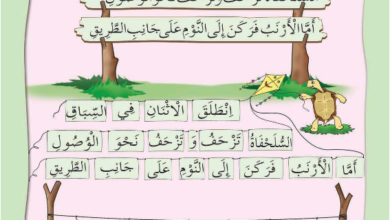 أَمَّا الْأَرْنَبُ فَرَكَنَ إِلَى النَّوْمِ عَلَى جَانِبِ الطَّرِيقِ
اِنْطَلَقَ الْاثْنَانِ فِي السِّبَاقِ
السُّلَحْفَاةُ تَزْحَفُ وَ تَزْحَفُ نَحْوَ الْوُصُولِ
أَمَّا الْأَرْنَبُ فَرَكَنَ إِلَى النَّوْمِ عَلَى جَانِبِ الطَّرِيقِ